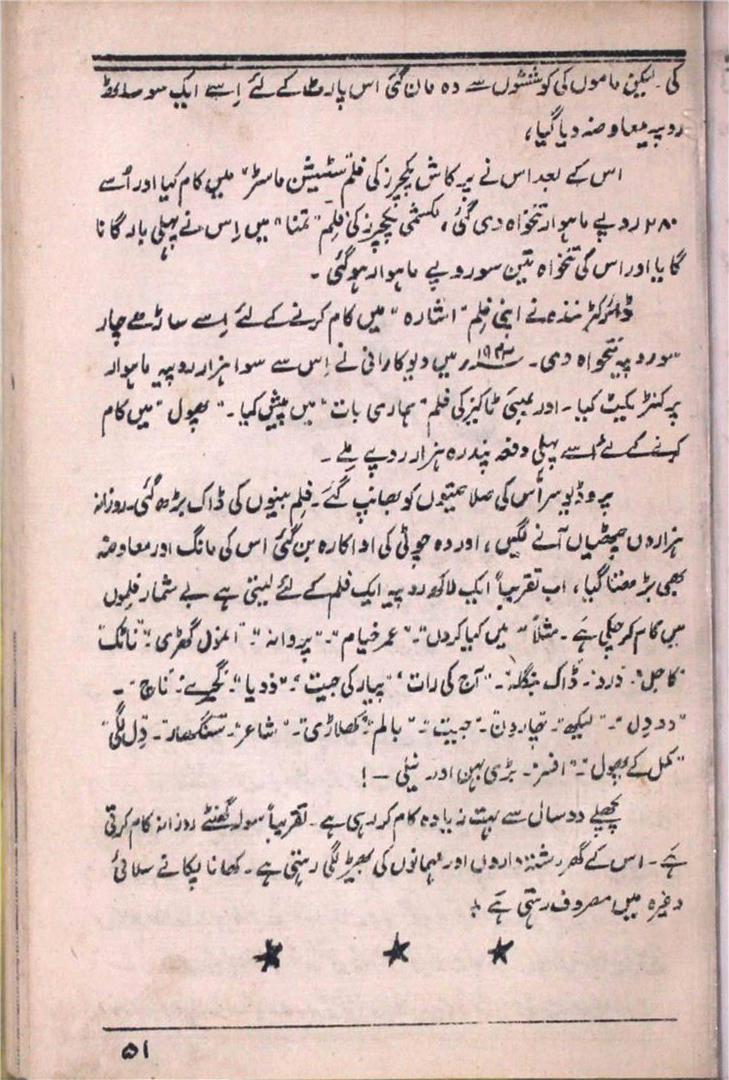 کی۔ لیکن ماموں کی کوششوں سے وہ مان گئی اس پارٹ کے لئے اِسے ایک سو ساٹھ
روپیہ معاوضہ دیا گیا،
اس کے بعد اس نے پرکاش پکچرز کی فلم "سٹیشن ماسٹر" میں کام کیا اور اُسے
۲۸۰ روپے ماہوار تنخواہ دی گئی، لکشمی پکچرز کی فلم "تمنا" میں اِس نے پہلی بار گانا
گایا اور اس کی تنخواہ تین سو روپے ماہوار ہوگئی۔
ڈائرکٹر نندہ نے اپنی فلم "اشارہ" میں کام کرنے کے لئے اِسے ساڑھے چار
سو روپیہ تنخواہ دی۔ ۱۹۴۳ء میں دیوکارانی نے اِس سے سوا ہزار روپیہ ماہوار
پر کنٹریکٹ کیا۔ اور بمبئی ٹاکیز کی فلم "ہماری بات" میں پیش کیا۔ "پھول" میں کام
کرنے کے لئے اُسے پہلی دفعہ پندرہ ہزار روپے ملے۔
پروڈیوسر اُس کی صلاحیتوں کو بھانپ گئے۔ فلم بینوں کی ڈاک بڑھ گئی۔ روزانہ
ہزاروں چٹھیاں آنے لگیں، اور وہ چوٹی کی اداکارہ بن گئی اس کی مانگ اور معاوضہ
بھی بڑھتا گیا، اب تقریباً ایک لاکھ روپیہ ایک فلم کے لئے لیتی ہے بے شمار فلموں
میں کام کر چکی ہے۔ مثلاً "میں کیا کروں"۔ "عمر خیام"۔ "پروانہ"۔ "انمول گھڑی"۔ "ناٹک"
"کاجل"۔ "درد"۔ "ڈاک بنگلہ"۔ "آج کی رات"، "پیار کی جیت"، "ودیا"۔ "گجرے"۔ "ناچ"۔
"دو دل"۔ "لیکھ"۔ "چار دن"۔ "جیت"۔ "بالم"۔ "کھلاڑی"۔ "شاعر"۔ "سنگھار"۔ "دِل لگی"
"کمل کے پھول"۔ "افسر"۔ بڑی بہن اور نیلی —!
پچھلے دو سال سے بہت زیادہ کام کر رہی ہے۔ تقریباً سولہ گھنٹے روزانہ کام کرتی
ہے۔ اس کے گھر رشتہ داروں اور مہمانوں کی بھیڑ لگی رہتی ہے۔ کھانا پکانے سلائی
وغیرہ میں مصروف رہتی ہے
۵۱